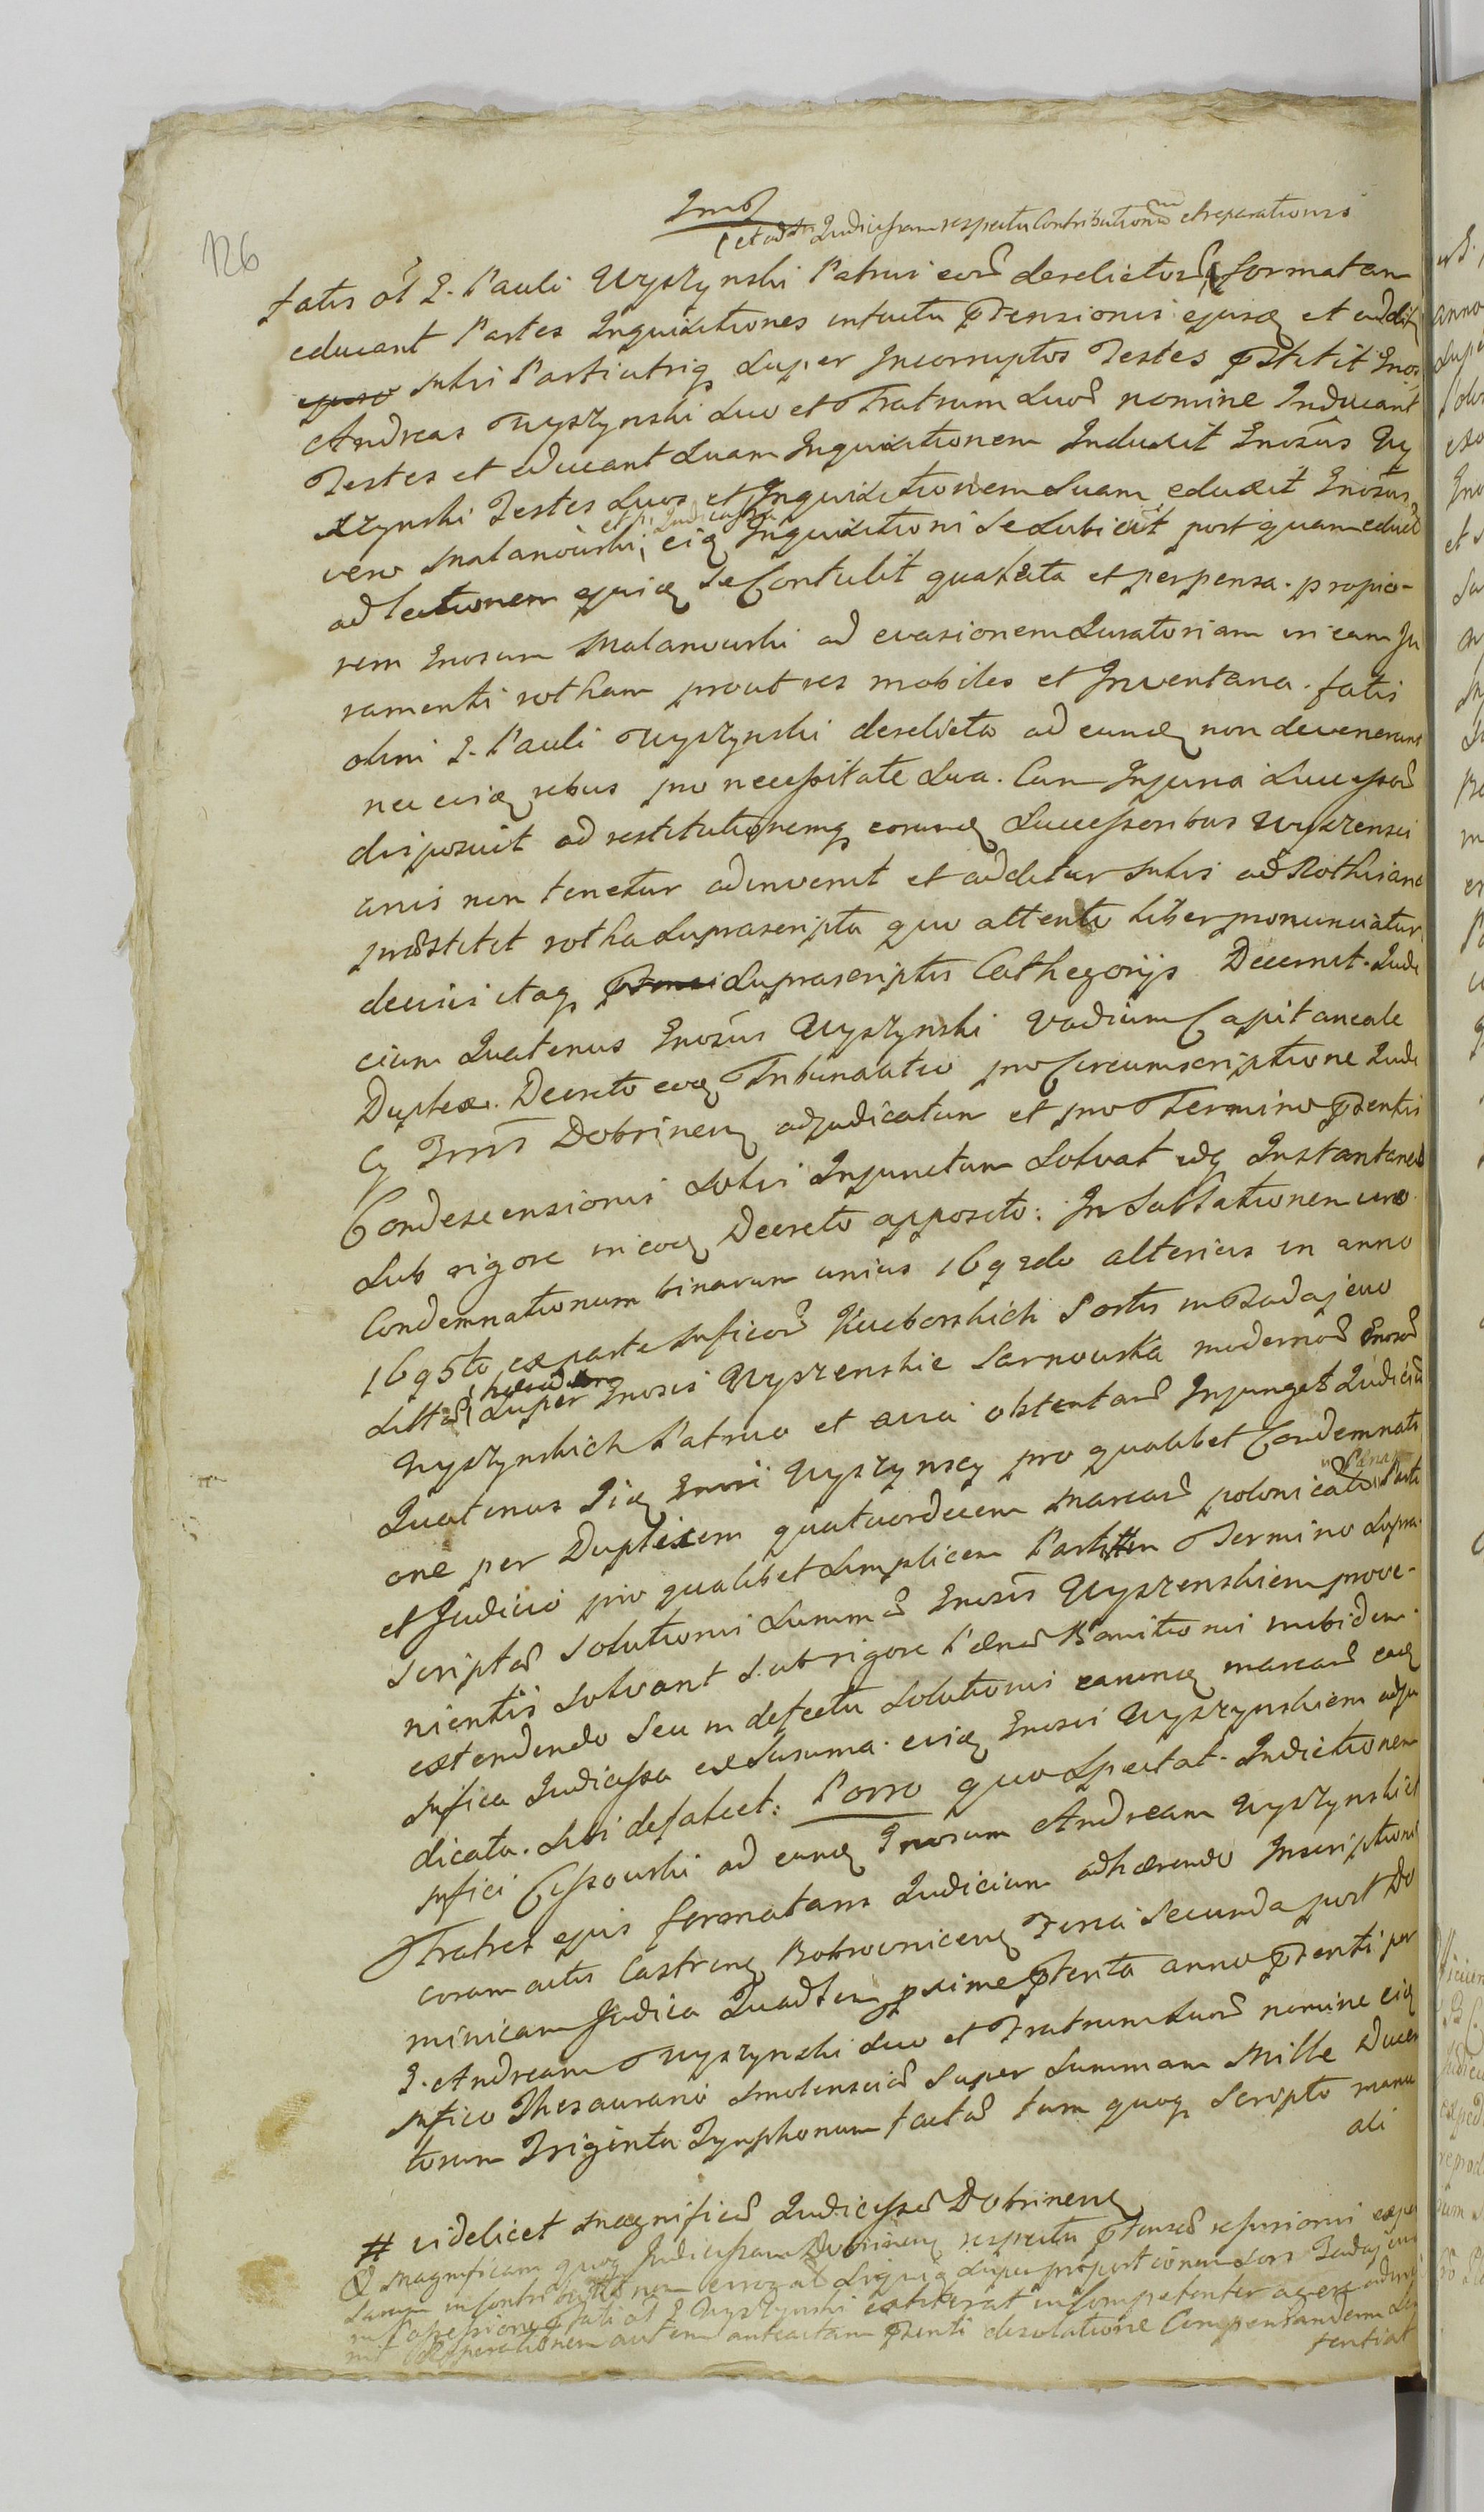 126
Imo
(et ad Judicissam respectu Contributionum et reparationis
fatis ol J. Pauli Wyszynski Patrui eorū derelictorū formatam
educant Partes Inquisitiones intuitu prtensionis ejusq et
juso suhis Parti utriq Super Incorruptos Testes prstitit Gnos
Andreas Wyszynski Suo et Fratrum Suorū nomine Inducant
Testes et educant Suam Inquisitionem Induxit Gnosus Wy
szynski Testes Suos et Inquisitionem Suam eduxit Gnosus
vero Malanowski, et Judicissa eiq Inquisitioni Se Subiecit post quam
ad lectionem ejusq Se Contulit qua lecta et perpensa. propio-
rem Gnosum Malanowski ad evasionem Juratoriam in eam Ju
ramenti rotham prout res mobiles et Inventaria. fatis
olim J. Pauli Wyszynski derelicta ad eundq non devenerunt
nec eisq rebus pro necessitate Sua. Cum Injuria Successorū
disposuit ad restitutionemq eorundq Successoribus Wyszensci
anis non tenetur adinvenit et additur suhis ad Rothisand
prostitit rotha Suprascripta quo attento liber pronunciatur
decisis itaq Suprascriptis Cathegorijs Decernit. Judi
cium Quatenus Gnosus Wyszynski Vadium Capitaneale
Duplex. Decreto eoq Tribunalitio pro Circumscriptione Judi
Cy Trris Dobrinenq adjudicatum et pro Termino prsentis
Condescensionis Solvi Injunctum Solvat idq Instantaneo
Sub rigore in eoq Decreto apposito: In Sublationem vero
Condemnationum binarum unius 1692do alterius in anno
1695to ex parte Mficorū Kucborskich Sortis in Zadajewo
Super Gnosis Wyszenskie Sarnowska modernorū Gnosorū
Wyszynskich Patruo et avia obtentarū Injungit Judiciū
Quatenus Iiq Gnosi Wyszynscy pro qualibet Condemnati
one per Duplicem quatuordecim marcarū polonicaliū Parti
et Judicio pro qualibet Simplicem Parti in Termino Supra
scriptæ Solutionis Summæ Gnosis Wyszenskiem prove-
nientis Solvant Sub rigore Pænæ Bannitionis in ibidem
extendendo Seu in defectu Solutionis earundq marcarū eadq
Mfica Judicissa ex Summa. eisq Gnosis Wyszynskiem adju
dicata. Sibi defalcet: Porro quo Spectat. Indictionem
Mfici Cissowski ad eundq Gnosum Andream Wyszynski et
Fratres ejus formatam Judicium adhærendo Inscriptioni
coram actis Castrenq Bobrownicenq Feria Secunda post Do
minicam Judica Quadlem proxime prterita anno prsenti per
J. Andream Wyszynski Suo et Fratrum Suorū nomine eiq
Mfico Thesaurario Smolensciæ Super Summam Mille Ducen
torum Triginta Tynphonum factæ tum quoq Scripto manu
ali
# videlicet Magnificæ Judicissæ Dobrinenq
Et Magnificam quoq Judicissam Dobrinenq respectu prtensæ refusionis
in Possessione fati ol J Wyszynski extiterat incompetenter agere
nit Reparationem autem anteactam prsenti desolatione Compensandam
sentiat